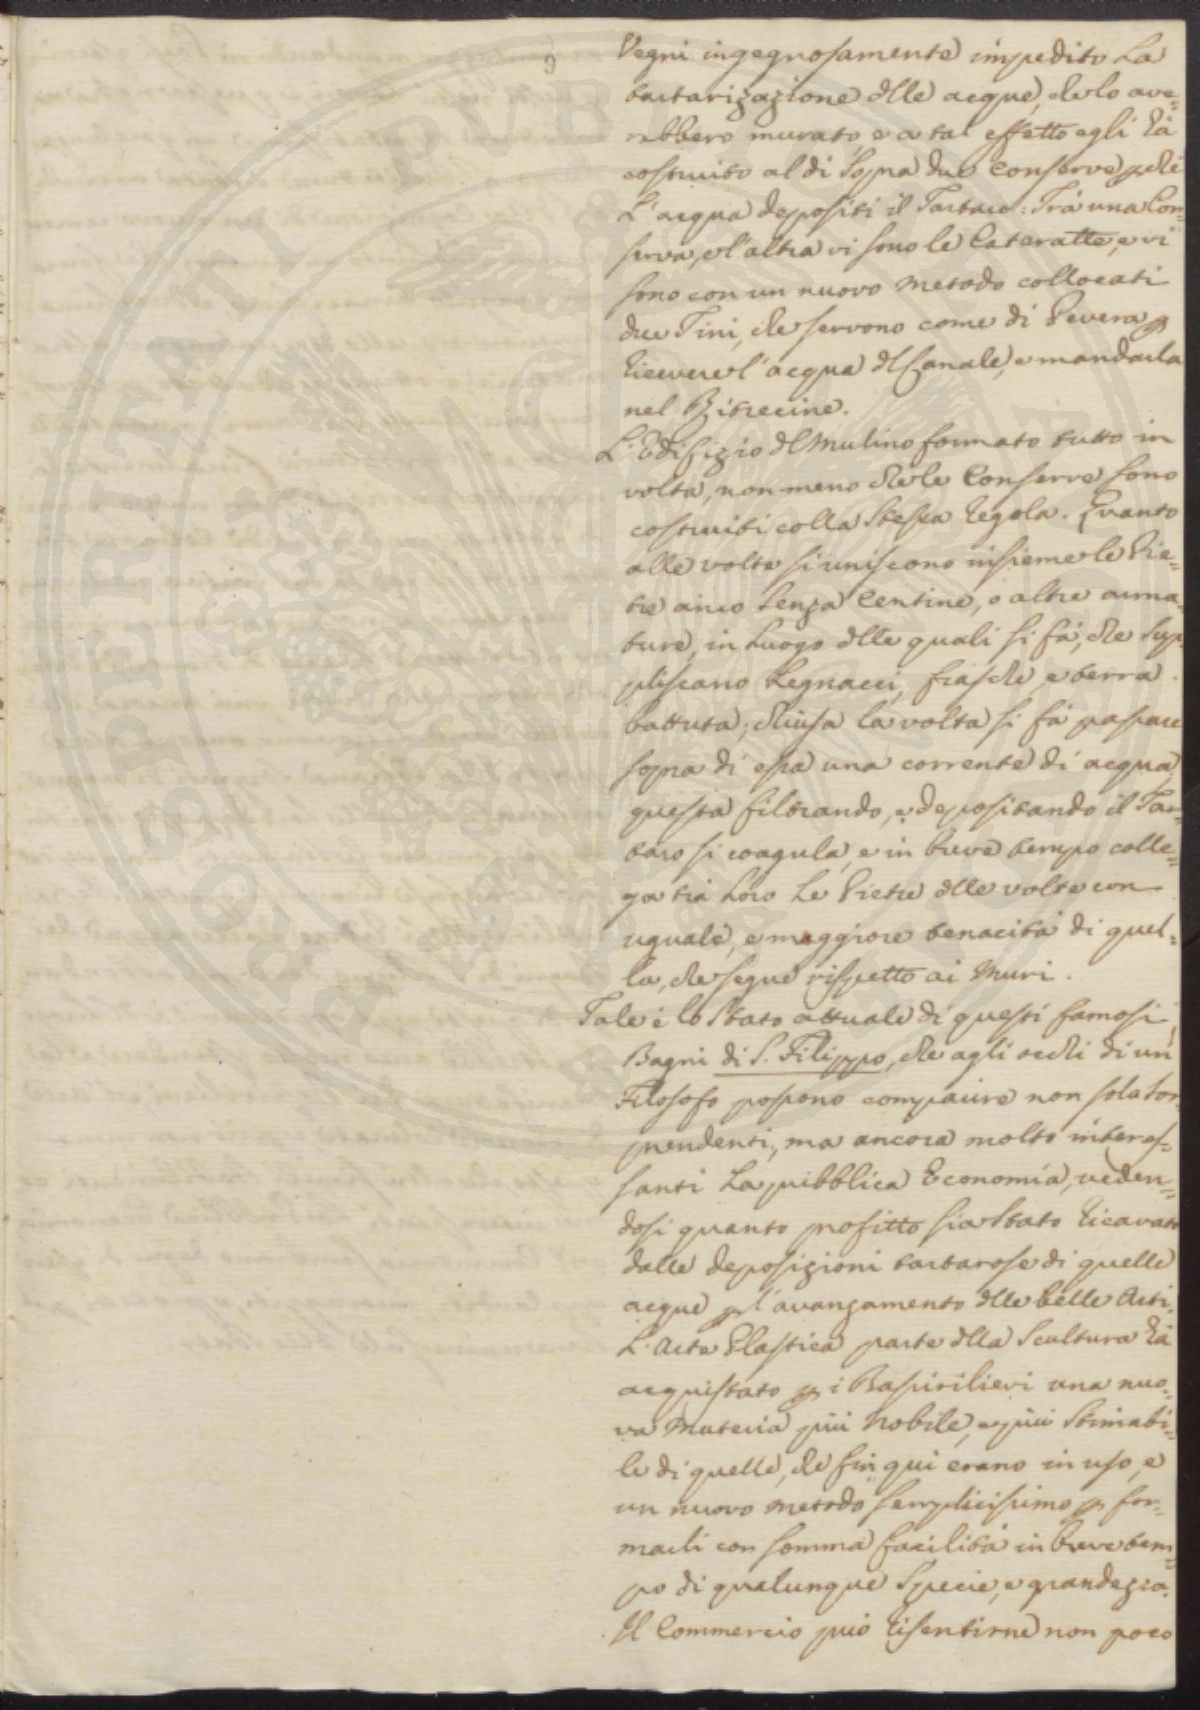 Vegni ingegnosamente impedito la
tartarizazione dlle acque, che lo ave=
rebbero murato, e a tal effetto egli hà
costruito al di sopra due Conserve, p che
L'acqua depositi il Tartaro: Trà una Con=
serva, e l'altra vi sono le Cateratte, e vi
sono con un nuovo metodo collocati
due Tini, che servono come di Pevera p
ricevere l'acqua dl Canale, e mandarla
nel Ritrecine.
L'Edifizio dl Mulino formato tutto in
volta, non meno che le Conserve sono
costruiti colla stessa regola. Quanto
alle volte si uniscono insieme le Pie=
tre anco senza Centine, o altre arma=
ture, in luogo dlle quali si fà, che sup=
pliscano Legnacci, frasche, e terra
battuta; chiusa la volta si fà passare
sopra di essa una corrente di acqua,
questa filtrando, e depositando il Tar=
taro si coagula, e in breve tempo colle=
ga trà loro le Pietre dlle volte con
uguale, e maggiore tenacità di quel=
la, che segue rispetto ai Muri.
Tale è lo stato attuale di questi famosi
Bagni di S. Filippo, che agli occhi di un
Filosofo possono comparire non solo sor=
prendenti, ma ancora molto interes=
santi la pubblica Economia, veden=
dosi quanto profitto sia stato ricavato
dalle deposizioni tartarose di quelle
acque p l'avanzamento dlle belle Arti.
L'Arte Plastica parte dlla Scultura hà
acquistato p i Bassirilievi una nuo=
va Materia più nobile, e più stimabi=
le di quelle, che fin qui erano in uso, e
un nuovo metodo semplicissimo p for=
marli con somma facilità in breve tem=
po di qualunque specie, e grandezza.
Il Commercio può risentirne non poco
PROSPERITATI PVBLICAE